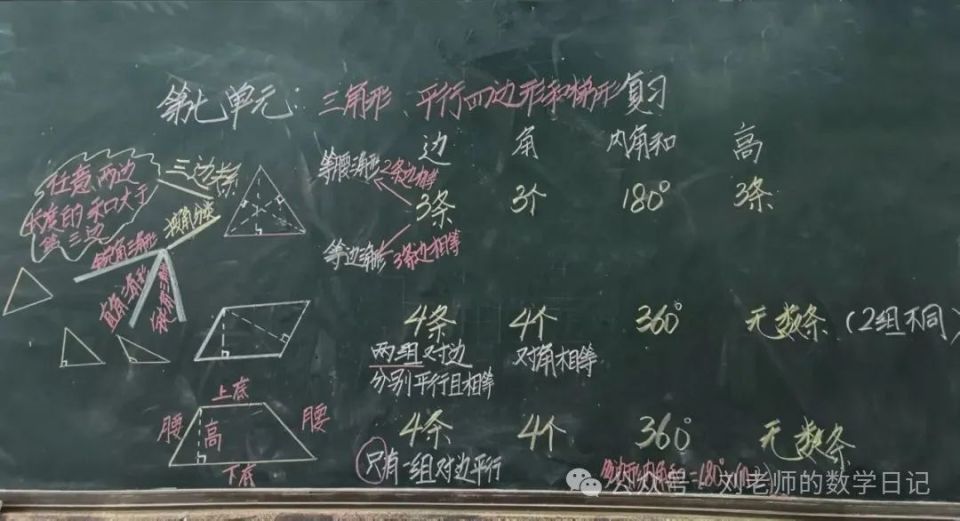 第七单元：三角形、平行四边形和梯形复习
边 角 内角和 高
任意两边
长度的和大于
第三边
三边关系
按角分类
锐角三角形
直角三角形
钝角三角形
等腰三角形 2条边相等
3条 3个 180° 3条
等边三角形 3条边相等
4条 4个 360° 无数条（2组不同）
两组对边 对角相等
分别平行且相等
上底
腰 高 腰
下底
4条 4个 360° 无数条
只有一组对边平行
多边形内角和=180°×(n-2)
公众号 刘老师的数学日记